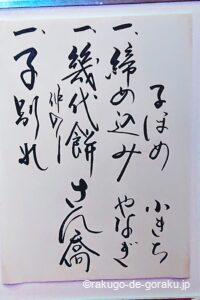 子ほめ 小きち
一、締め込み やなぎ
一、幾代餅 さん喬
仲入り
一、子別れ
©rakugo-de-goraku.jp